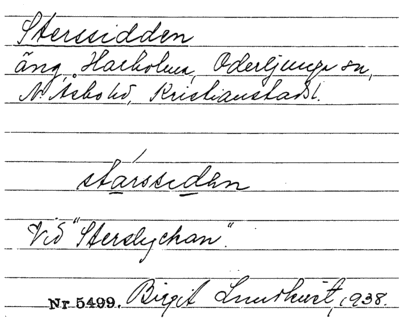 Sterssidden
äng, Harholma, Oderljunga sn,
N. Åsbo hd, Kristianstads l.
stạrssidẹn
Vid "Sterslyckan".
Nr 5499. Birgit Lundkvist, 1938.